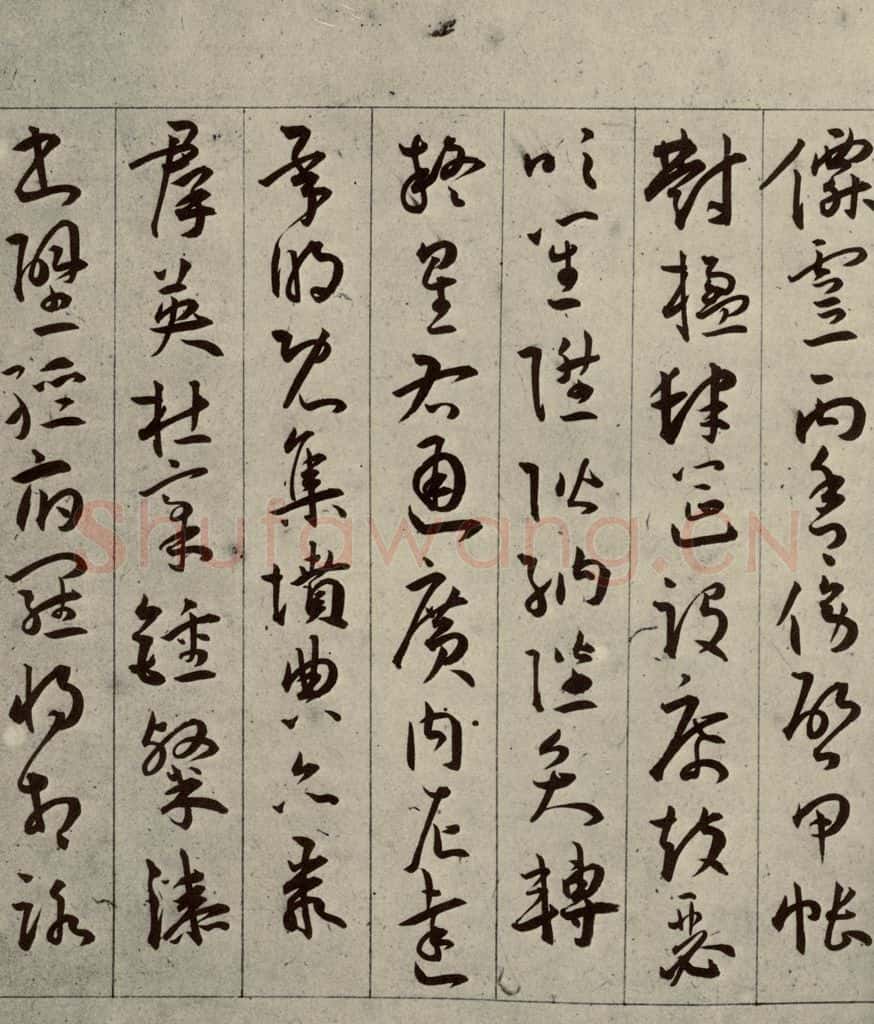 僊靈丙舍傍啓甲帳
對楹肆筵設席鼓瑟
吹笙陞階納陛弁轉
疑星右通廣內左達
承明既集墳典亦聚
羣英杜稾鍾隸漆
書壁經府羅將相路
Shufawang.CN